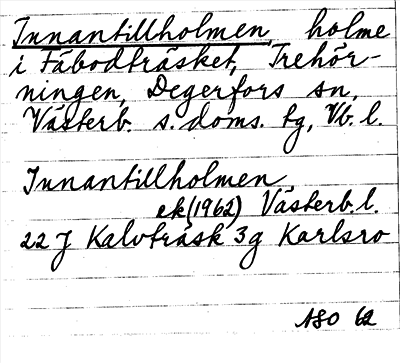 Innantillholmen, holme
i Fäbodträsket, Trehör-
ningen, Degerfors sn,
Västerb. s. doms. tg, Vb. l.
Innantillholmen
ek (1962) Västerb. l.
22 J Kalvträsk 3g Karlsro
ASO 62